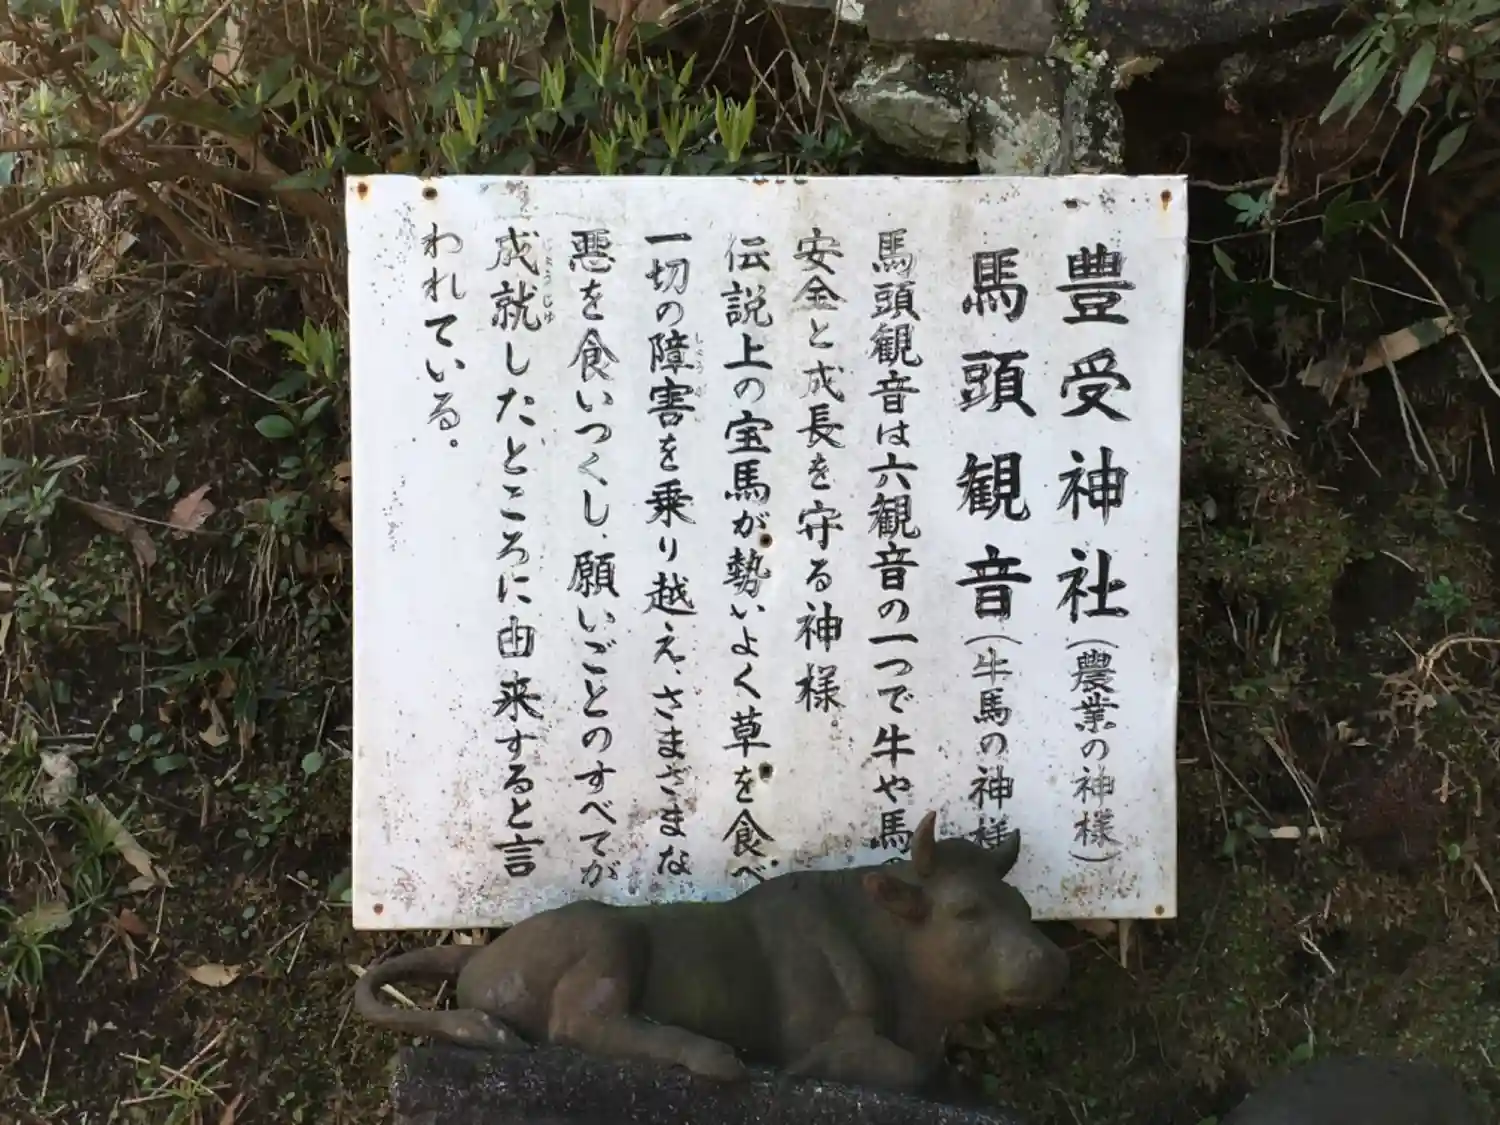 豊受神社(農業の神様)
馬頭観音(牛馬の神様
馬頭観音は六観音の一つで牛や馬
安全と成長を守る神様。
伝説上の宝馬が勢いよく草を食べ、
一切の障害を乗り越え、さまざまな
しょうがい
悪を食いつくし、願いごとのすべてが
成就したところに由来すると言
じょうじゅ
われている。